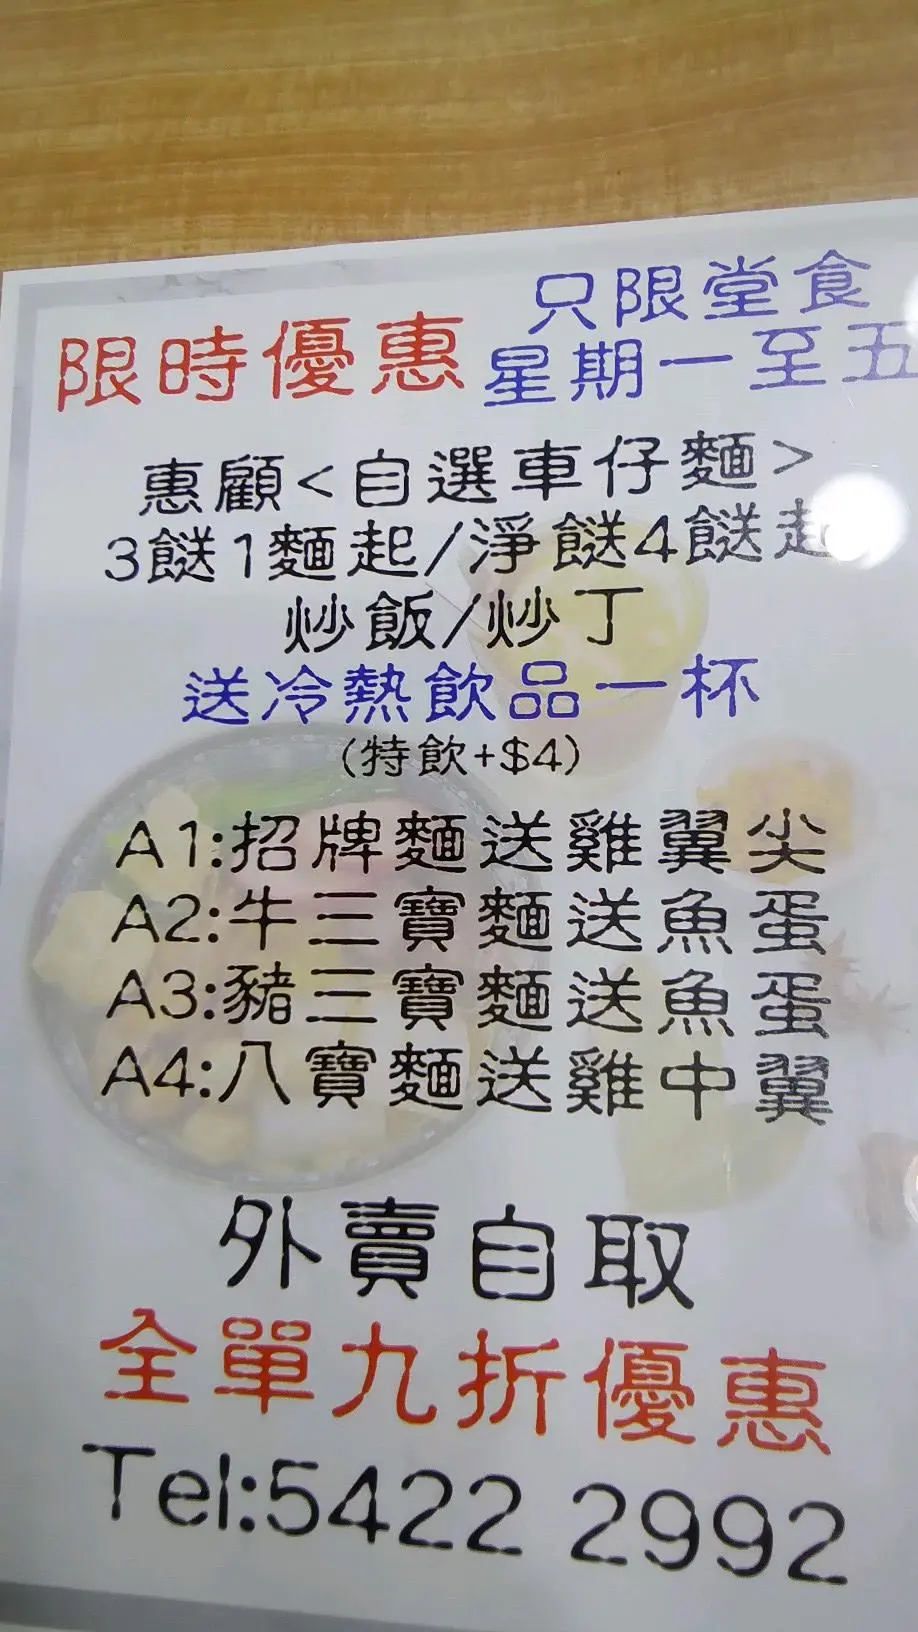 限時優惠
只限堂食
星期一至五
惠顧<自選車仔麵>
3餸1麵起/淨餸4餸起
炒飯/炒丁
送冷熱飲品一杯
(特飲+$4)
A1:招牌麵送雞翼尖
A2:牛三寶麵送魚蛋
A3:豬三寶麵送魚蛋
A4:八寶麵送雞中翼
外賣自取
全單九折優惠
Tel:5422 2992